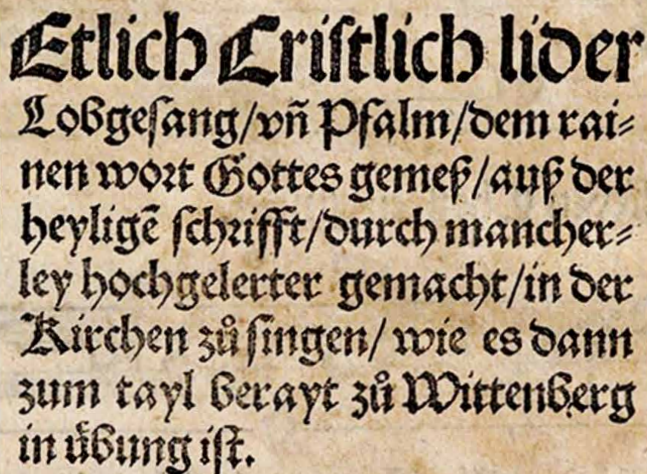 Etlich Cristlich lider
Lobgesang/vñ Psalm/dem rai⸗
nen wort Gottes gemeß/auß der
heyligē schrifft/durch mancher⸗
ley hochgelerter gemacht/in der
Kirchen zů singen/ wie es dann
zum tayl berayt zů Wittenberg
in übung ist.